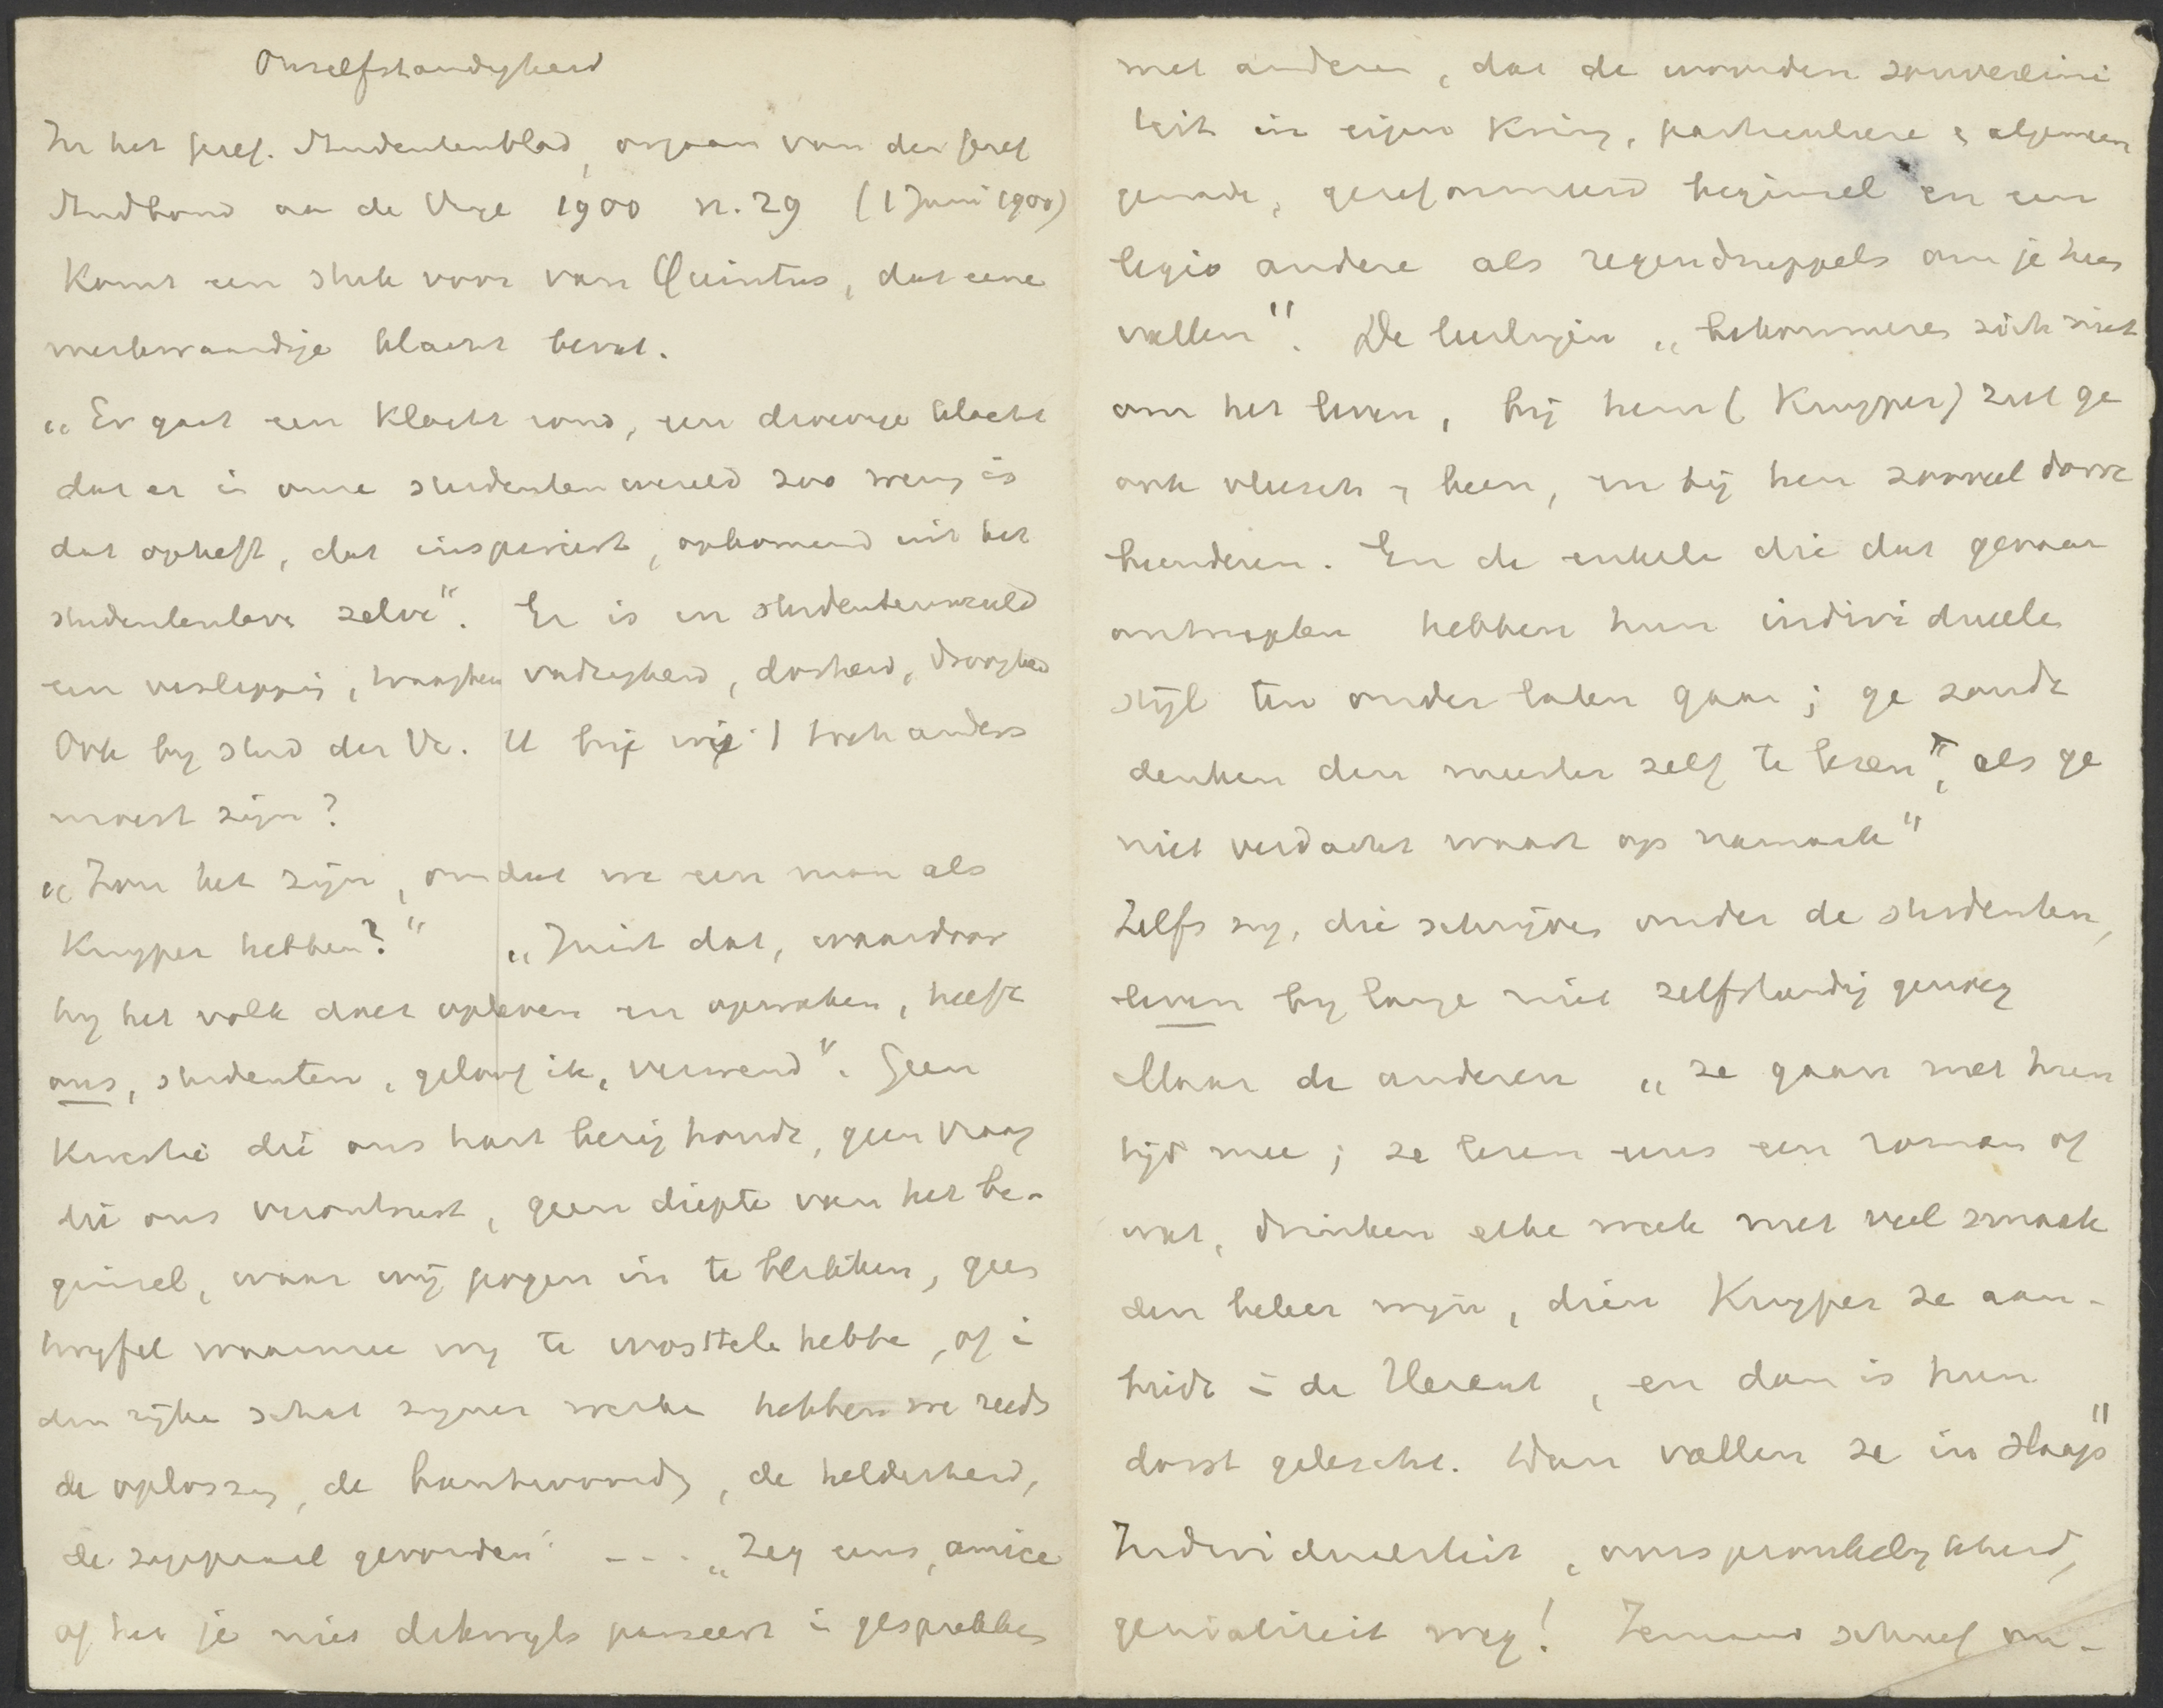 Onzelfstandigheid
In het geref. Studentenblad, orgaan van den geref
Studbond aan de Vrije 1900 n. 29 (1 Juni 1900)
komt een stuk voor van Quintus, dat eene
merkwaardige klacht bevat.
„Er gaat een klacht rond, een droevige klacht
dat er in onze studentenwereld zoo weinig is
dat opheft, dat inspireert, opkomend uit het
studentenleve zelve". Er is in studentenwereld
een verslapping, traagheid vadzigheid, dorheid, droogheid
Ook bij stud der Vr. U bij wie 't toch anders
moest zijn?
„Zou het zijn, omdat we een man als
Kuyper hebben?" „Juist dat, waardoor
hij het volk doet opleven en opwaken, heeft
ons, studenten, geloof ik, verwend". Geen
kwestie die ons hart bezig houdt, geen vraag
die ons verontrust, geen diepte van het be-
ginsel, waar wij pogen in te blikken, geen
twijfel waarmee wij te worstele hebbe, of in
den rijke schat zijner werke hebben we reeds
de oplossing, de beantwoording, de helderheid,
de gevonden" - - - „Zeg eens, amice
of het je niet dikwijls passeert in gesprekken
met anderen, dat de woorden souvereini
teit in eigen kring, particuliere en algemeen
genade, gereformeerd beginsel en een
legio andere als regendruppels om je heen
vallen". De leerlingen „bekommeren zich niet
om het leven, bij hem (Kuyper) ziet ge
ook vleesch en been, en bij hen zooveel dorre
beenderen. En de enkele die dat gevaar
ontsnapten hebben hun individueele
stijl ten onder laten gaan; ge zoudt
denken den meester zelf te lezen, als ge
niet verdacht waart op namaak"
Zelfs zij, die schrijven onder de studenten,
leven bij lange niet zelfstandig genoeg
Maar de anderen „ze gaan met hun
tijd mee; ze lezen eens een roman of
wat, drinken elke week met veel smaak
den beker wijn, dien Kuyper ze aan-
biedt in de Heraut, en dan is hun
dorst gelescht. Dan vallen ze in slaap"
Individualiteit, oorspronkelijkheid,
genialiteit weg! Iemand schreef on-